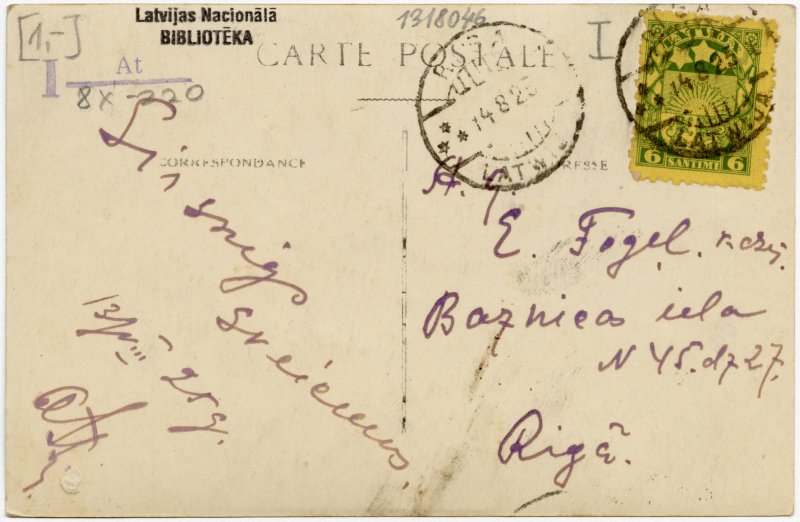 [1,-]
Latvijas Nacionālā
BIBLIOTĒKA
1318046
I
At
8X-220
CARTE POSTALE
I
14.8.25
LATWIJA
LATVIJA
14.8.
LATWIJA
6 SANTIMI 6
CORRESPONDANCE
Sirsnigs
sveiciens.
13/VIII 25 g.
A. G.
E. Fogel. kdze.
Baznicas iela
N 45. dz 27.
Rigā.